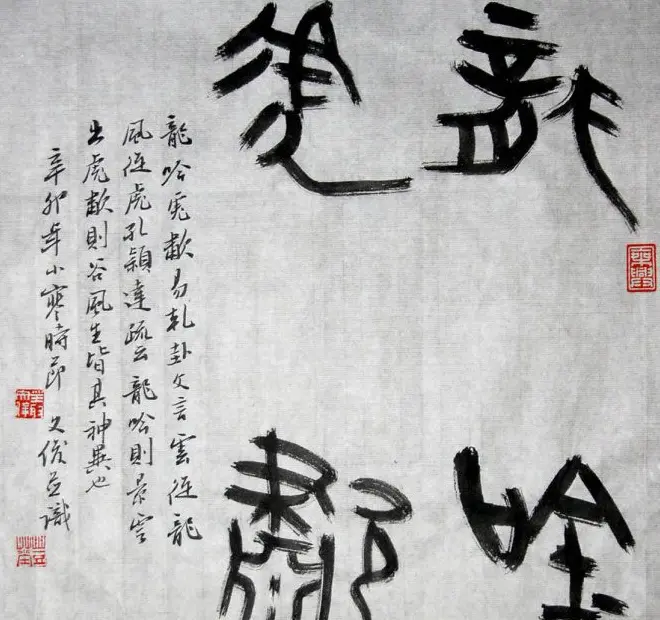 龍吟
虎歗
龍吟虎歗易乾卦文言雲從龍
風從虎孔穎達疏云龍吟則景雲
出虎歗則谷風生皆其神異也
辛卯年小寒時節 文俊並識